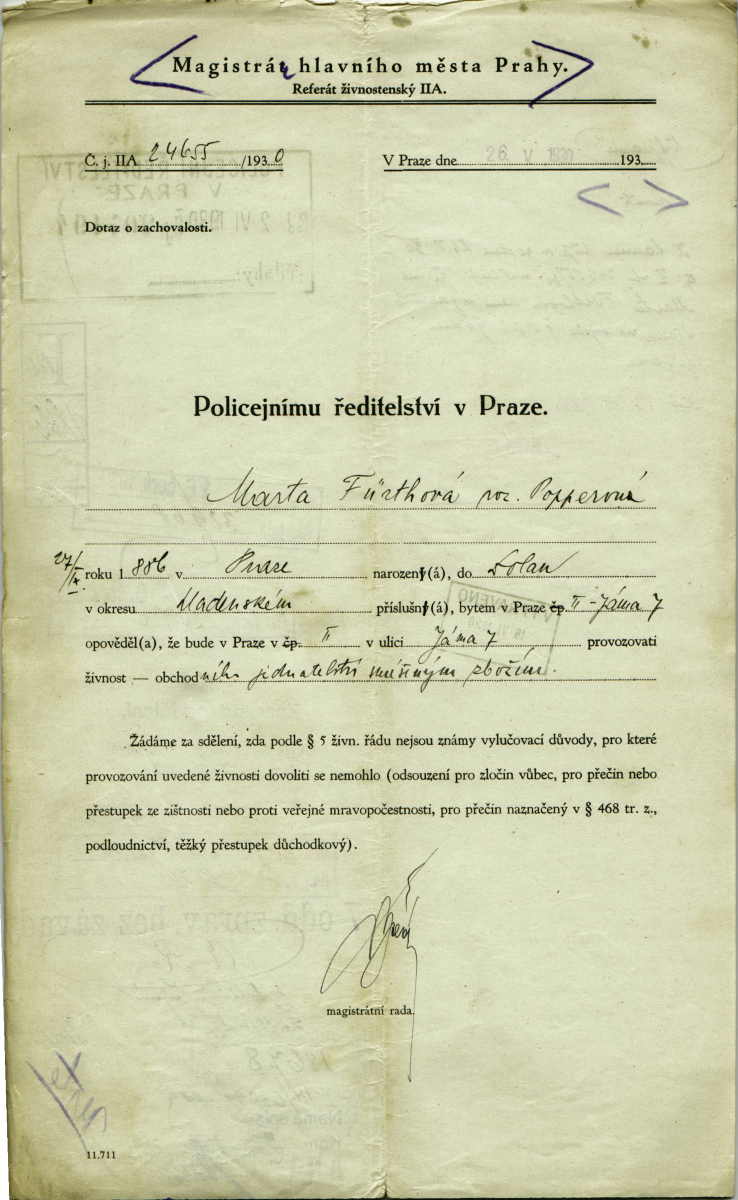 Magistrát hlavního města Prahy.
Referát živnostenský IIA.
Č. j. IIA 24655 /1930
V Praze dne 26. V. 1930 193
Dotaz o zachovalosti.
Policejnímu ředitelství v Praze.
Marta Fürthová roz. Popperová
27/IX. roku 1886 v Praze narozený(á), do Dolan
v okresu Kladenském příslušný(á), bytem v Praze čp. II - Jáma 7
opověděl(a), že bude v Praze v čp. II v ulici Jáma 7 provozovati
živnost — obchodního jednatelství smíšeným zbožím.
Žádáme za sdělení, zda podle § 5 živn. řádu nejsou známy vylučovací důvody, pro které
provozování uvedené živnosti dovoliti se nemohlo (odsouzení pro zločin vůbec, pro přečin nebo
přestupek ze zištnosti nebo proti veřejné mravopočestnosti, pro přečin naznačený v § 468 tr. z.,
podloudnictví, těžký přestupek důchodkový).
magistrátní rada.
11.711